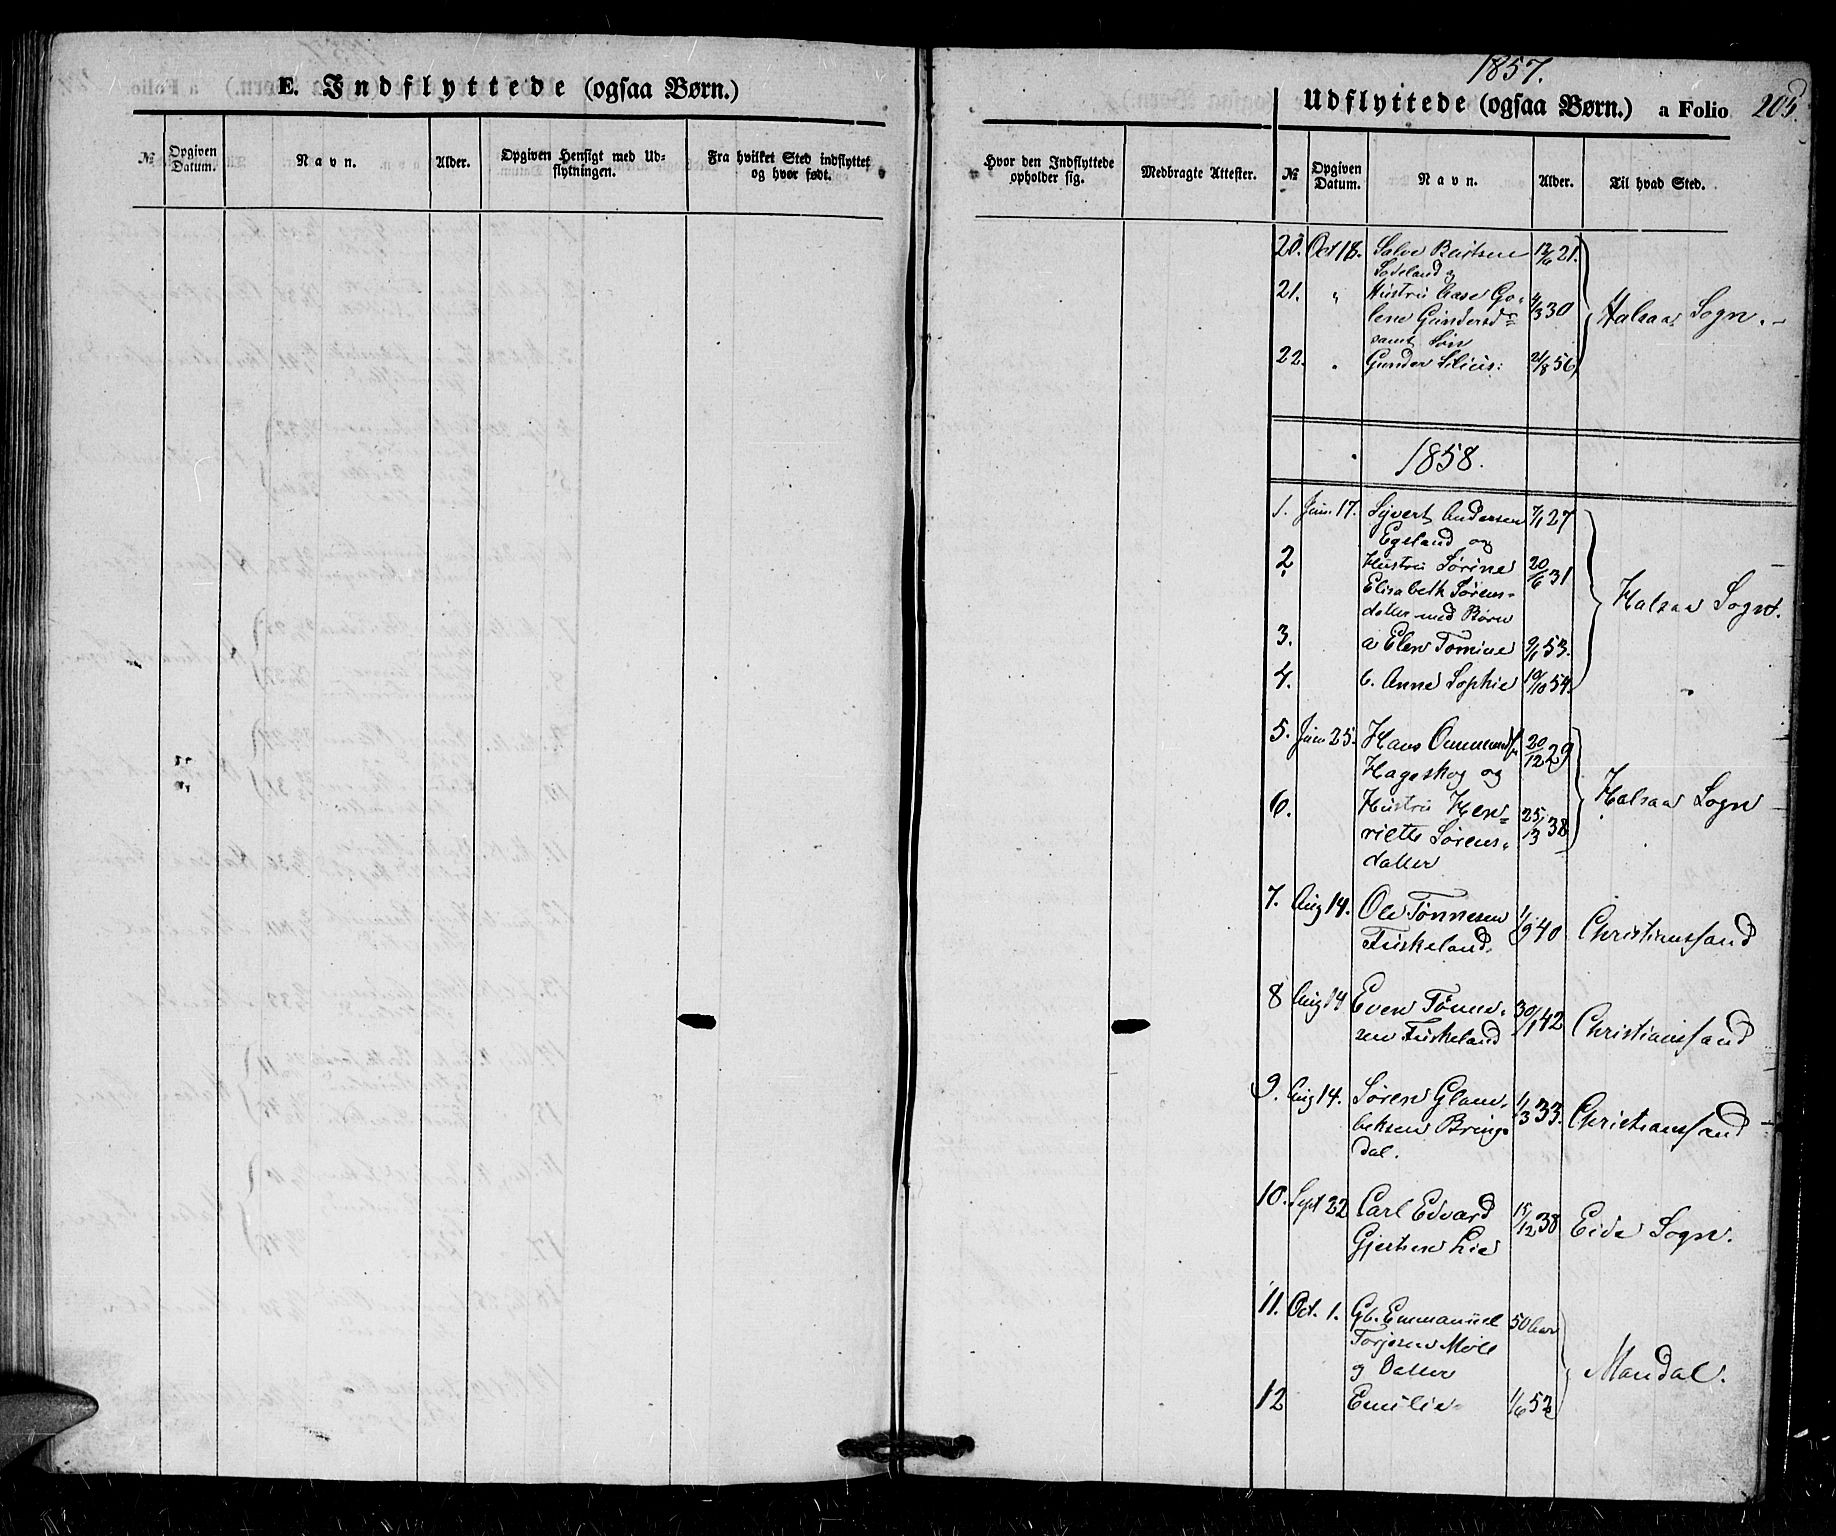 E. Indflyttede (ogsaa Børn.)
№ Opgiven Datum. Navn. Alder. Opgiven Hensigt med Udflytningen. Fra hvilket Sted indflyttet og hvor født.
1857.
Udflyttede (ogsaa Børn.) a Folio 205.
Hvor den Indflyttede opholder sig. Medbragte Attester. № Opgiven Datum. Navn. Alder. Til hvad Sted.
20. Oct 18. Salve 12/6 21.
Sodeland og
21. " Hustru Aase Go- 4/3 30 Halsaa Sogn.
lene Gundersd
samt Søn
22. " Gunder 21/8 56
1858.
1. Juni 17. Syvert Andersen 7/1 27
Egeland og
2 Hustru Sørine 20/6 31
Elisabeth Sørens- Halsaa Sogn.
datter med Børn
3. a Elen Tomine 9/1 53.
4. b. Anne Sophie 19/10 54.
5. Juni 25. Hans 20/12 29
Hageskog og
6. Hustru Hen= 25/3 38 Halsaa Sogn
riette Sørens-
datter
7. Aug 14. Ole Tønnesen 1/9 40 Christianssand
Fuskeland.
8 Aug 14 Even Tønne- 30/1 42 Christianssand
sen Fuskeland
9. Aug 14. Søren Glam- 1/3 33. Christianssand
beksen Brings-
dal.
10. Sept 22 Carl Edvard 15/12 38 Eide Sogn.
Gjertsen Lie
11. Oct. 1. Gb. Emmanuel 50 Aar
Torjesen Møll Mandal.
og Datter
12 Emilie 1/6 52